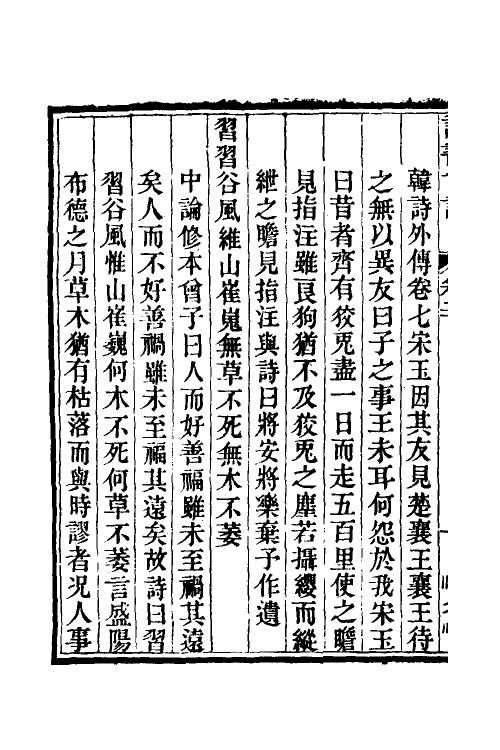 韓詩外傳卷七宋玉因其友見楚襄王襄王待
之無以異友曰子之事王未耳何怨於我宋玉
曰昔者齊有狡兎盡一日而走五百里使之瞻
見指注雖良狗猶不及狡兎之塵若攝纓而縱
紲之瞻見指注與詩曰將安將樂棄予作遺
習習谷風維山崔嵬無草不死無木不萎
中論修本曾子曰人而好善福雖未至禍其遠
矣人而不好善禍雖未至福其遠矣故詩曰習
習谷風惟山崔巍何木不死何草不萎言盛陽
布德之月草木猶有枯落而與時謬者况人事